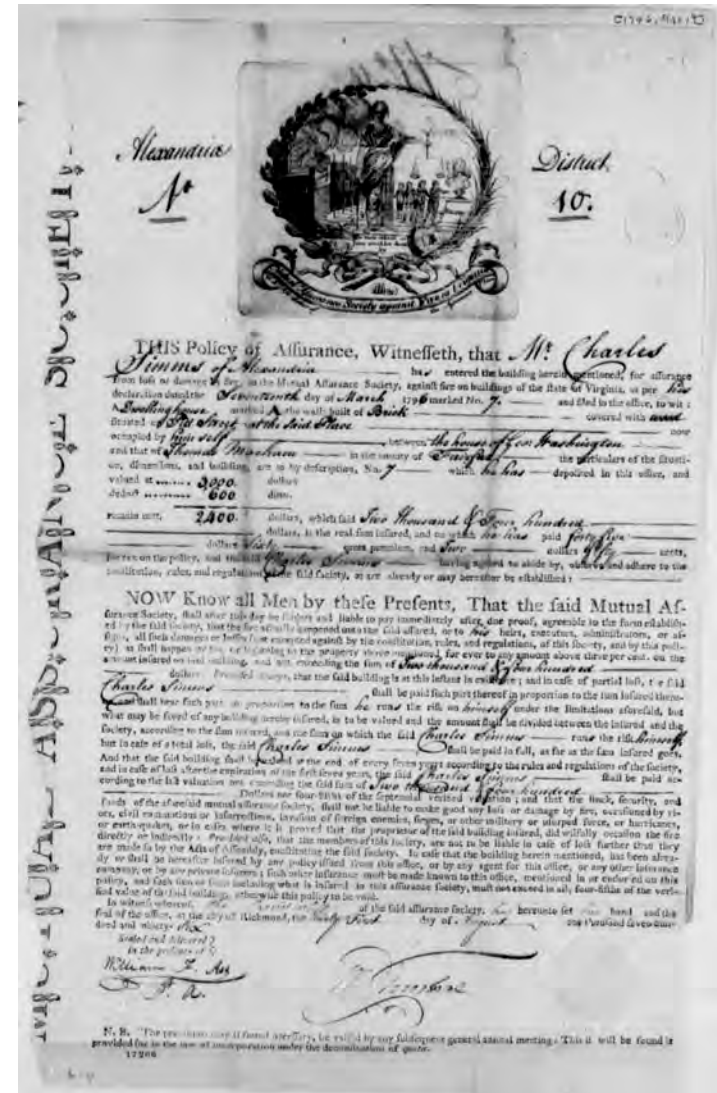 Alexandria
District
No
10.
Mutual Assurance Society against Fire on Buildings
MUTUAL ASSURANCE SOCIETY.
THIS Policy of Assurance, Witnesseth, that Mr. Charles
Simms of Alexandria has entered the building herein mentioned, for assurance
from loss or damage by fire, in the Mutual Assurance Society, against fire on buildings of the state of Virginia, as per his
declaration dated the Seventeenth day of March 1796 marked No. 7. and filed in the office, to wit:
A Dwelling house marked A the walls built of Brick covered with wood
situated at the said Place now
occupied by himself between the house of Gen. Washington
and that of Thomas in the county of Fairfax the particulars of the situati-
on, dimensions, and building, are as by description, No. 7 which he has deposited in this office, and
valued at 3,000. dollars
deduct 600 ditto.
remains nett, 2,400. dollars, which said Two thousand & Four hundred
dollars, is the real sum insured, and on which he has paid forty five
dollars Sixty cents premium, and Two dollars fifty cents,
for tax on the policy, and the said Charles Simms having agreed to abide by, observe and adhere to the
constitution, rules, and regulations of the said society, as are already or may hereafter be established:
NOW Know all Men by these Presents, That the said Mutual As-
surance Society, shall after this day be subject and liable to pay immediately after due proof, agreeable to the form establish-
ed by the said society, that the fire actually happened unto the said assured, or to his heirs, executors, administrators, or as-
signs, all such damages or losses (not excepted against by the constitution, rules, and regulations, of this society, and by this poli-
cy) as shall happen to the property above mentioned, for ever to any amount above three per cent. on the
amount insured on said building, and not exceeding the sum of Two thousand & four hundred
dollars. Provided always, that the said building is at this instant in existence; and in case of partial loss, the said
Charles Simms shall be paid such part thereof in proportion to the sum insured there-
and shall bear such part in proportion to the sum he runs the risk on himself under the limitations aforesaid, but
what may be saved of any building hereby insured, is to be valued and the amount shall be divided between the insured and the
society, according to the sum insured, and the sum on which the said Charles Simms runs the risk himself,
but in case of a total loss, the said Charles Simms shall be paid in full, as far as the sum insured goes.
And that the said building shall be valued at the end of every seven years according to the rules and regulations of the society,
and in case of loss after the expiration of the first seven years, the said Charles Simms shall be paid ac-
cording to the last valuation not exceeding the said sum of Two thousand & four hundred
Dollars nor four-fifths of the septennial verified valuation; and that the stock, security, and
funds of the aforesaid mutual assurance society, shall not be liable to make good any loss or damage by fire, occasioned by ri-
ots, civil commotions or insurrections, invasion of foreign enemies, sieges, or other military or usurped force, or hurricanes,
or earthquakes, or in cases where it is proved that the proprietor of the said building insured, did wilfully occasion the fire
directly or indirectly: Provided also, that the members of this society, are not to be liable in case of loss further than they
are made so by the Acts of Assembly, constituting the said society. In case that the building herein mentioned, has been alrea-
dy or shall be hereafter insured by any policy issued from this office, or by any agent for this office, or any other insurance
company, or by any private insurers; such other insurance must be made known to this office, mentioned in or endorsed on this
policy, and such sum or sums including what is insured in this assurance society, must not exceed in all, four-fifths of the veri-
fied value of the said buildings, otherwise this policy to be void.
In witness whereof, of the said assurance society, hereunto set hand and the
seal of the office, at the city of Richmond, the Twenty First day of August one thousand seven hun-
dred and ninety Six
Sealed and delivered
in the presence of
William F. Ast
P. A.
N. B. The premiums may if found necessary, be raised by any subsequent general annual meeting. This it will be found is
provided for in the law of incorporation under the denomination of quotas.
17266